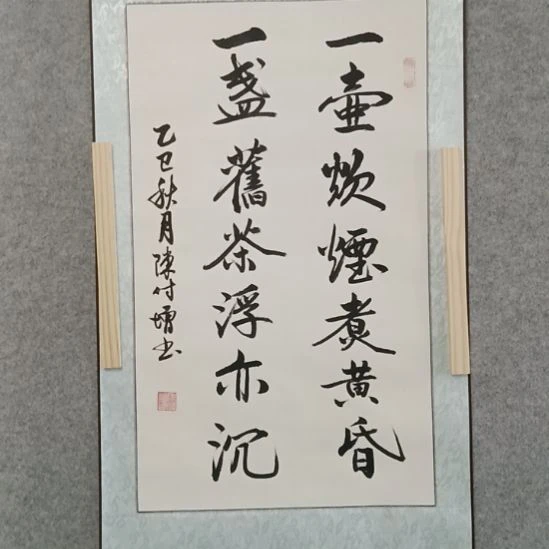 一壶炊煙煮黄昏
一盏舊茶浮亦沉
乙巳秋月陳付增书